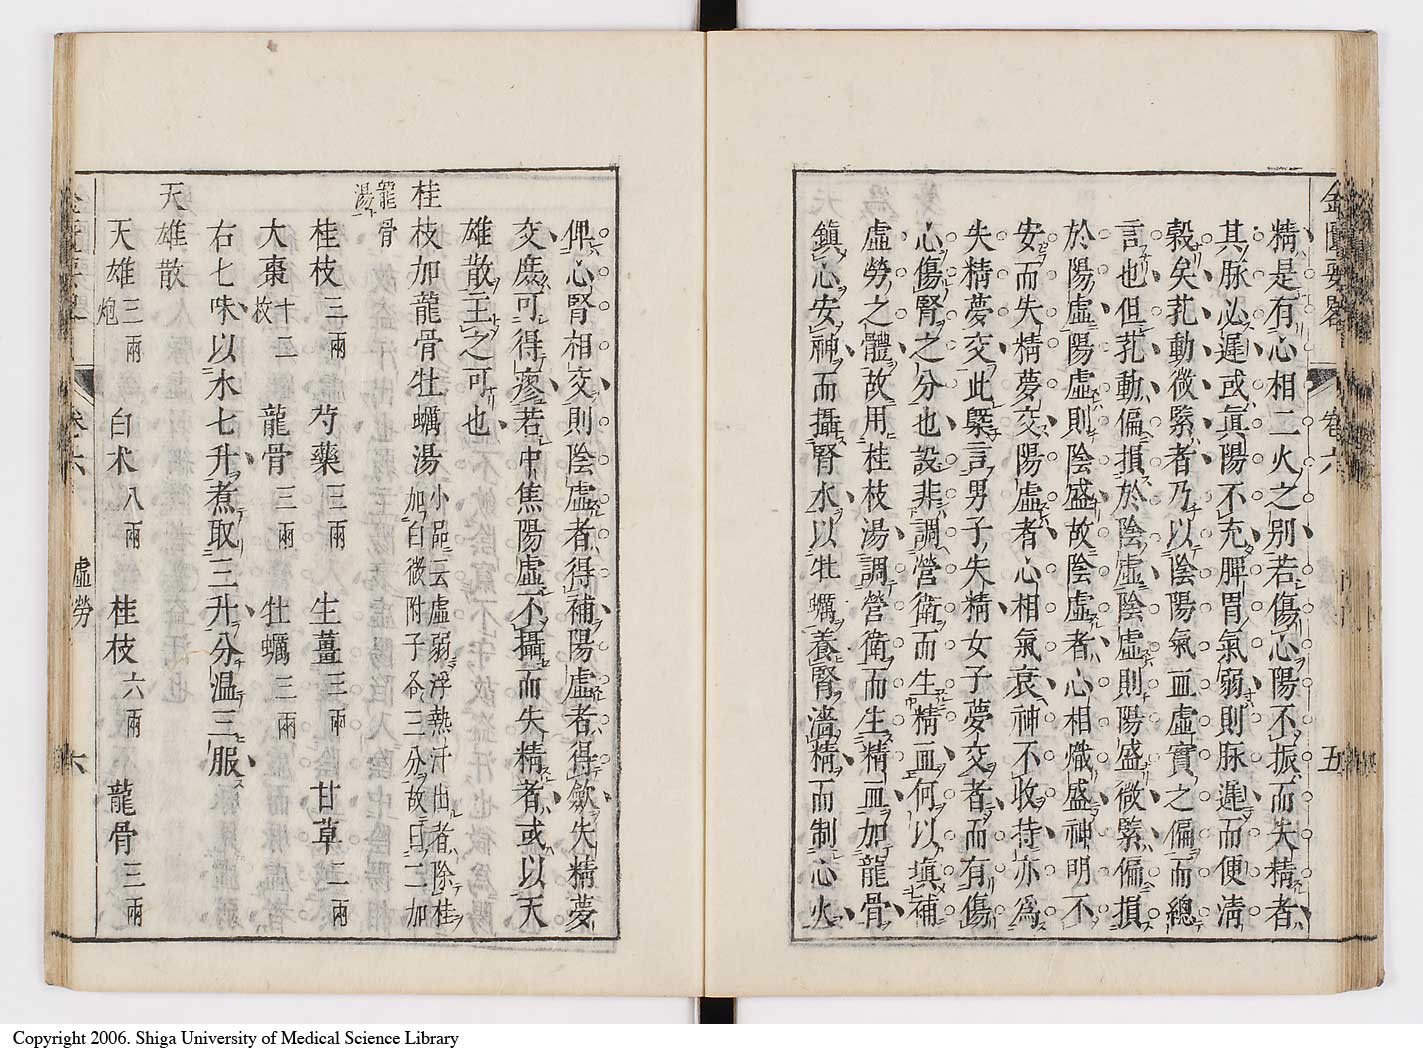 金匱要畧 卷六 五
精是有心相二火之別若傷心陽不振而失精者
其脉必遲或眞陽不充脾胃氣弱則脉遲而便清
穀矣芤動微緊者乃以陰陽氣血虛實之偏而總
言也但芤動偏損於陰虛陰虛則陽盛微緊偏損
於陽虛陽虛則陰盛故陰虛者心相熾盛神明不
安而失精夢交陽虛者心相氣衰神不收持亦爲
失精夢交此槩言男子失精女子夢交者而有傷
心傷腎之分也設非調營衛而生精血何以塡補
虛勞之體故用桂枝湯調營衛而生精血加龍骨
鎭心安神而攝腎水以牡蠣養腎濇精而制心火
俾心腎相交則陰虛者得補陽虛者得歛失精夢
交庶可得瘳若中焦陽虛不攝而失精者或以天
雄散主之可也
桂枝加龍骨牡蠣湯 小品云虛弱浮熱汗出者除桂
加白微附子各三分故曰二加
龍骨
湯
桂枝三兩 芍藥三兩 生薑三兩 甘草二兩
大棗十二枚 龍骨三兩 牡蠣三兩
右七味以水七升煮取三升分温三服
天雄散
天雄三兩炮 白朮八兩 桂枝六兩 龍骨三兩
卷六 虛勞 六
Copyright 2006. Shiga University of Medical Science Library